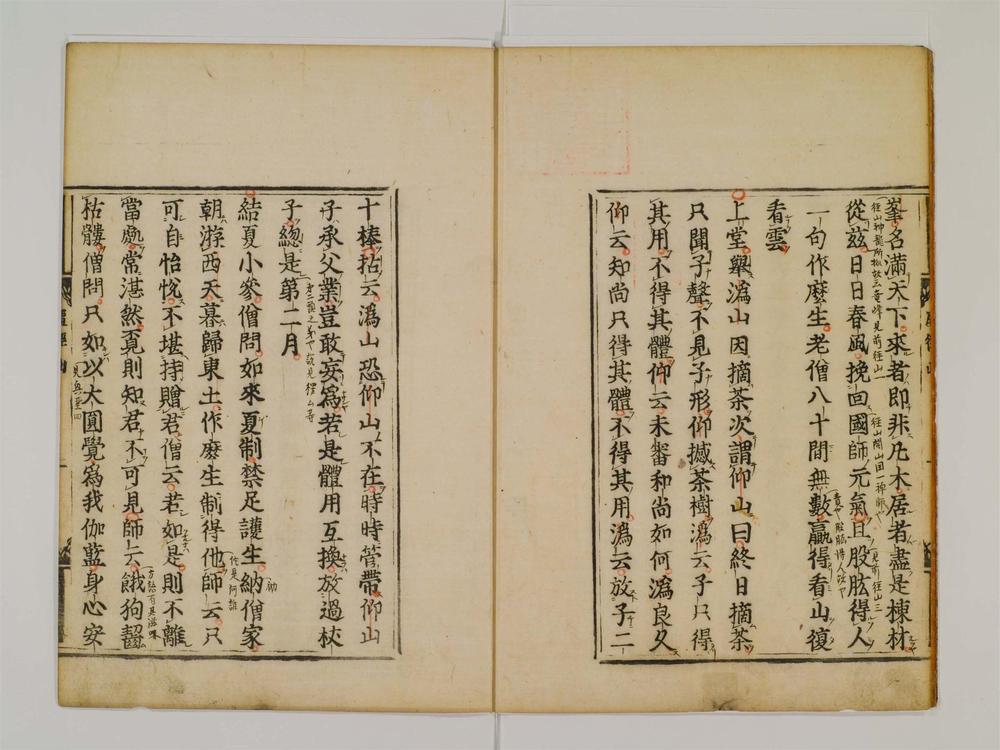 峯名滿天下來者即非凡木居者盡是棟材
從茲日日春風挽回國師元氣且股肱得人
一句作麼生老僧八十間無數贏得看山復
看雲
上堂舉溈山因摘茶次謂仰山曰終日摘茶
只聞子聲不見子形仰撼茶樹溈云子只得
其用不得其體仰云未審和尚如何溈良久
仰云知尚只得其體不得其用溈云放子二
十棒拈云溈山恐仰山不在時時管帶仰山
子承父業豈敢妄爲若是體用互換放過杖
子總是第二月
結夏小參僧問如來夏制禁足護生納僧家
朝游西天暮歸東土作麼生制得他師云只
可自怡悅不堪持贈君僧云若如是則不離
當處常湛然覓則知君不可見師云餓狗齧
枯髏僧問只如以大圓覺爲我伽藍身心安